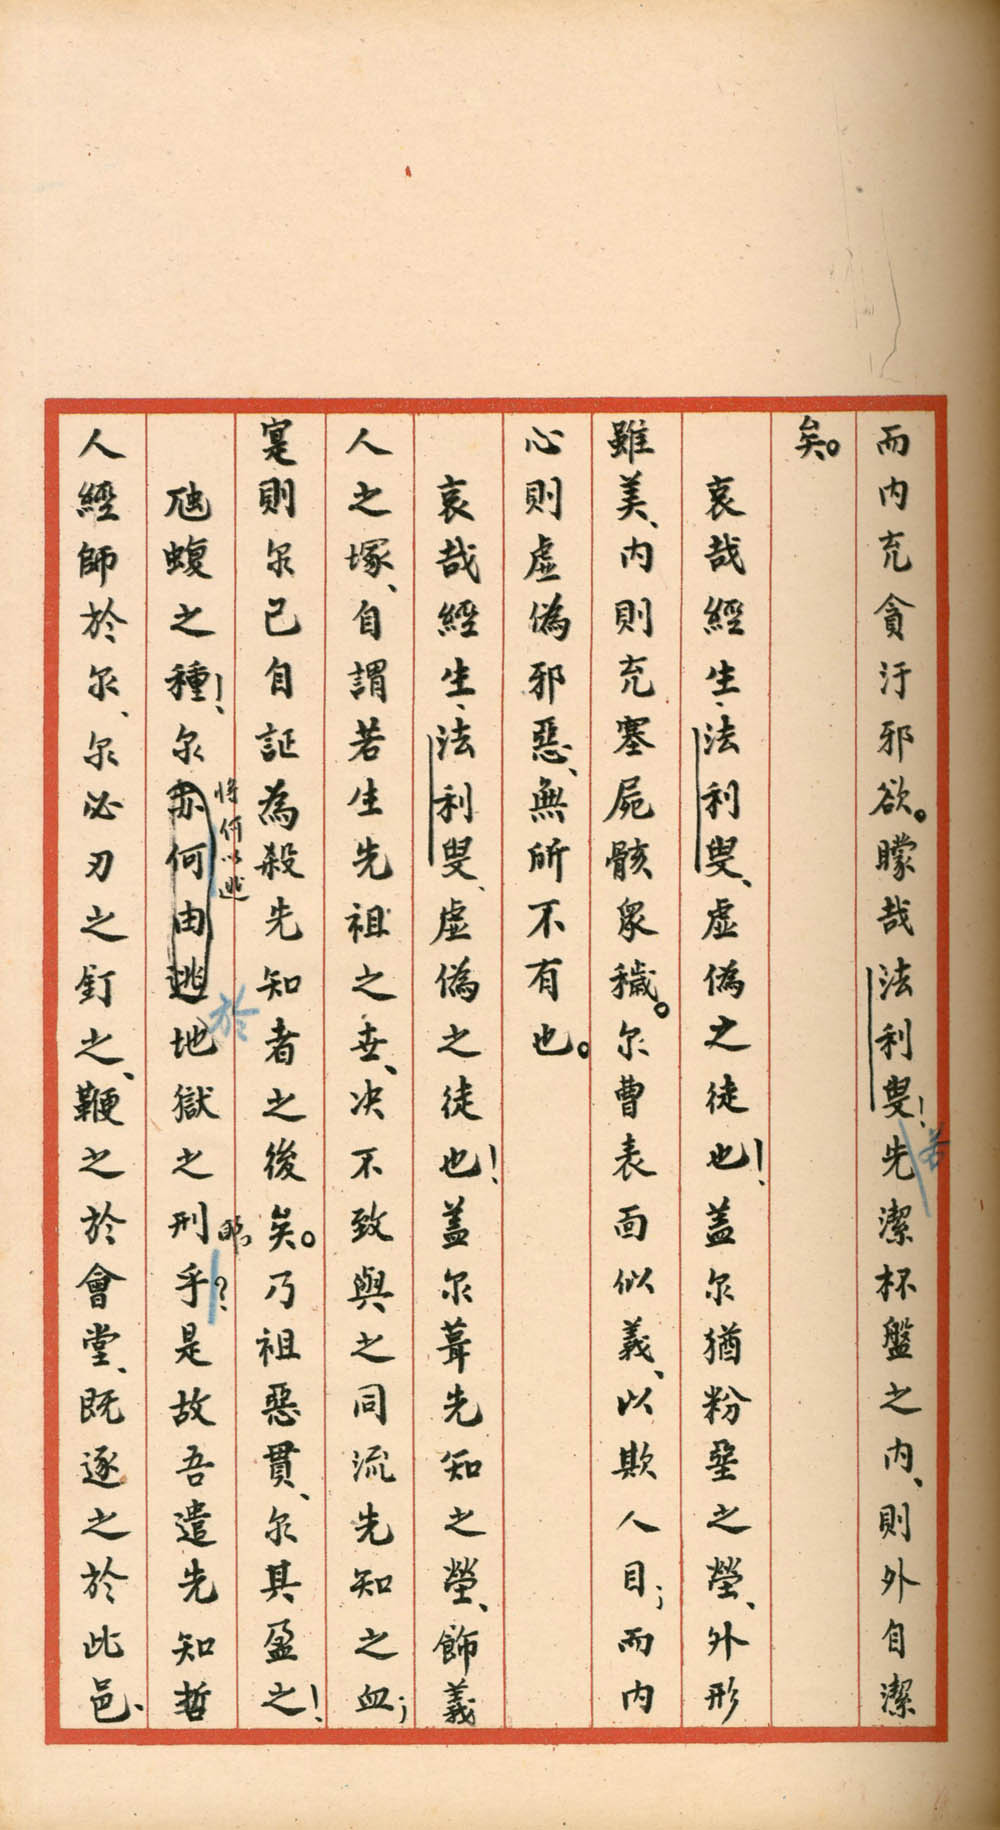 而内充貪汙邪欲。矇哉法利叟!先潔杯盤之内、則外自潔
若
矣。
哀哉經生、法利叟、虛偽之徒也!蓋尔猶粉堊之塋、外形
雖美、内則充塞屍骸衆穢。尔曹表面似義、以欺人目;而内
心則虛偽邪惡、無所不有也。
哀哉經生、法利叟、虛偽之徒也!蓋尔葺先知之塋、飾義
人之塚、自謂若生先祖之世、决不致與之同流先知之血;
寔則尔已自証為殺先知者之後矣。乃祖惡貫、尔其盈之!
虺蝮之種!、尔亦何由逃地獄之刑乎是故吾遣先知哲
將何以逃
於
耶?
人經師於尔、尔必刃之釘之、鞭之於會堂、既逐之於此邑、